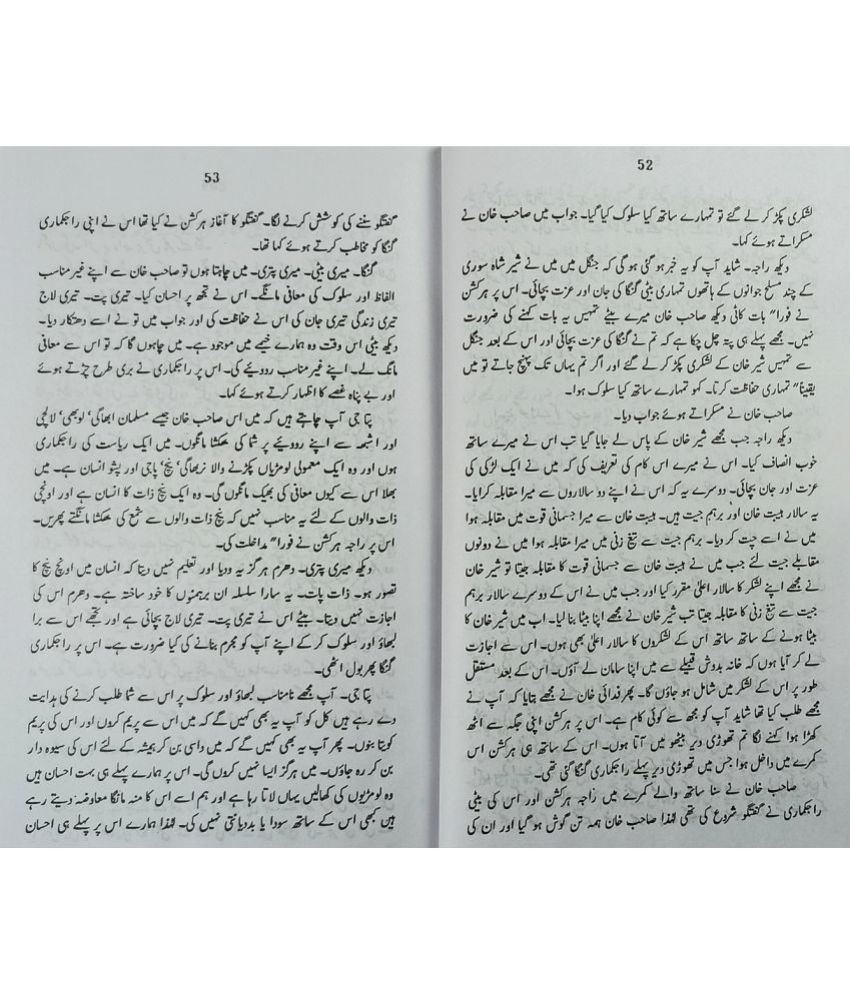 52
لشکری پکڑ کر لے گئے تو تمہارے ساتھ کیا سلوک کیا گیا۔ جواب میں صاحب خان نے
مسکراتے ہوئے کہا۔
دیکھ راجہ۔ شاید آپ کو یہ خبر ہو گئی ہو گی کہ جنگل میں میں نے شیر شاہ سوری
کے چند مسلح جوانوں کے ہاتھوں تمہاری بیٹی گنگا کی جان اور عزت بچائی۔ اس پر ہرکشن
نے فورا" بات کاٹی دیکھ صاحب خان میرے بیٹے تمہیں یہ بات کہنے کی ضرورت
نہیں۔ مجھے پہلے ہی پتہ چل چکا ہے کہ تم نے گنگا کی عزت بچائی اور اس کے بعد جنگل
سے تمہیں شیر خان کے لشکری پکڑ کر لے گئے اور اگر تم یہاں تک پہنچ جاتے تو میں
یقینا" تمہاری حفاظت کرتا۔ کہو تمہارے ساتھ کیا سلوک ہوا۔
صاحب خان نے مسکراتے ہوئے جواب دیا۔
دیکھ راجہ جب مجھے شیر خان کے پاس لے جایا گیا تب اس نے میرے ساتھ
خوب انصاف کیا۔ اس نے میرے اس کام کی تعریف کی کہ میں نے ایک لڑکی کی
عزت اور جان بچائی۔ دوسرے یہ کہ اس نے اپنے دو سالاروں سے میرا مقابلہ کرایا۔
یہ سالار ہیبت خان اور برہم جیت ہیں۔ ہیبت خان سے میرا جسمانی قوت میں مقابلہ ہوا
میں نے اسے چت کر دیا۔ برہم جیت سے تیغ زنی میں میرا مقابلہ ہوا میں نے دونوں
مقابلے جیت لئے جب میں نے ہیبت خان سے جسمانی قوت کا مقابلہ جیتا تو شیر خان
نے مجھے اپنے لشکر کا سالار اعلیٰ مقرر کیا اور جب میں نے اس کے دوسرے سالار برہم
جیت سے تیغ زنی کا مقابلہ جیتا تب شیر خان نے مجھے اپنا بیٹا بنا لیا۔ اب میں شیر خان کا
بیٹا ہونے کے ساتھ ساتھ اس کے لشکروں کا سالار اعلیٰ بھی ہوں۔ اس سے اجازت
لے کر آیا ہوں کہ خانہ بدوش قبیلے سے میں اپنا سامان لے آؤں۔ اس کے بعد مستقل
طور پر اس کے لشکر میں شامل ہو جاؤں گا۔ پھر فدائی خان نے مجھے بتایا کہ آپ نے
مجھے طلب کیا تھا شاید آپ کو مجھ سے کوئی کام ہے۔ اس پر ہرکشن اپنی جگہ سے اٹھ
کھڑا ہوا کہنے لگا تم تھوڑی دیر بیٹھو میں آتا ہوں۔ اس کے ساتھ ہی ہرکشن اس
کمرے میں داخل ہوا جس میں تھوڑی دیر پہلے راجکماری گنگا گئی تھی۔
صاحب خان نے سنا ساتھ والے کمرے میں راجہ ہرکشن اور اس کی بیٹی
راجکماری نے گفتگو شروع کی تھی لہٰذا صاحب خان ہمہ تن گوش ہو گیا اور ان کی
53
گفتگو سننے کی کوشش کرنے لگا۔ گفتگو کا آغاز ہرکشن نے کیا تھا اس نے اپنی راجکماری
گنگا کو مخاطب کرتے ہوئے کہا تھا۔
گنگا۔ میری بیٹی۔ میری پتری۔ میں چاہتا ہوں تو صاحب خان سے اپنے غیر مناسب
الفاظ اور سلوک کی معافی مانگے۔ اس نے تجھ پر احسان کیا۔ تیری پت۔ تیری لاج
تیری زندگی تیری جان کی اس نے حفاظت کی اور جواب میں تو نے اسے دھتکار دیا۔
دیکھ بیٹی اس وقت وہ ہمارے خیمے میں موجود ہے۔ میں چاہوں گا کہ تو اس سے معافی
مانگ لے۔ اپنے غیر مناسب روویئے کی۔ اس پر راجکماری نے بری طرح چڑتے ہوئے
اور بے پناہ غصے کا اظہار کرتے ہوئے کہا۔
پتا جی آپ چاہتے ہیں کہ میں اس صاحب خان جیسے مسلمان ابھاگی' لوبھی' لالچی
اور اشبھ سے اپنے روویئے پر شما کی بھکشا مانگوں۔ میں ایک ریاست کی راجکماری
ہوں اور وہ ایک معمولی لومڑیاں پکڑنے والا نربھاگی' نیچ' پاجی اور پشو انسان ہے۔ میں
بھلا اس سے کیوں معافی کی بھیک مانگوں گی۔ وہ ایک نیچ ذات کا انسان ہے اور اونچی
ذات والوں کے لئے یہ مناسب نہیں کہ نیچ ذات والوں سے شمع کی بھکشا مانگتے پھریں۔
اس پر راجہ ہرکشن نے فورا" مداخلت کی۔
دیکھ میری پتری۔ دھرم ہرگز یہ ودیا اور تعلیم نہیں دیتا کہ انسان میں اونچ نیچ کا
تصور ہو۔ ذات پات۔ یہ سارا سلسلہ ان برہمنوں کا خود ساختہ ہے۔ دھرم اس کی
اجازت نہیں دیتا۔ بیٹے اس نے تیری پت۔ تیری لاج بچائی ہے اور تجھے اس سے برا
لبھاؤ اور سلوک کر کے اپنے آپ کو مجرم بنانے کی کیا ضرورت ہے۔ اس پر راجکماری
گنگا پھر بول اٹھی۔
پتا جی۔ آپ مجھے نامناسب لبھاؤ اور سلوک پر اس سے شما طلب کرنے کی ہدایت
دے رہے ہیں کل کو آپ یہ بھی کہیں گے کہ میں اس سے پریم کروں اور اس کی پریم
کویتا بنوں۔ پھر آپ یہ بھی کہیں گے کہ میں داسی بن کر ہمیشہ کے لئے اس کی سیوہ دار
بن کر رہ جاؤں۔ میں ہرگز ایسا نہیں کروں گی۔ اس پر ہمارے پہلے ہی بہت احسان ہیں
وہ لومڑیوں کی کھالیں یہاں لاتا رہا ہے اور ہم اسے اس کا منہ مانگا معاوضہ دیتے رہے
ہیں کبھی اس کے ساتھ سودا یا بددیانتی نہیں کی۔ لہٰذا ہمارے اس پر پہلے ہی احسان